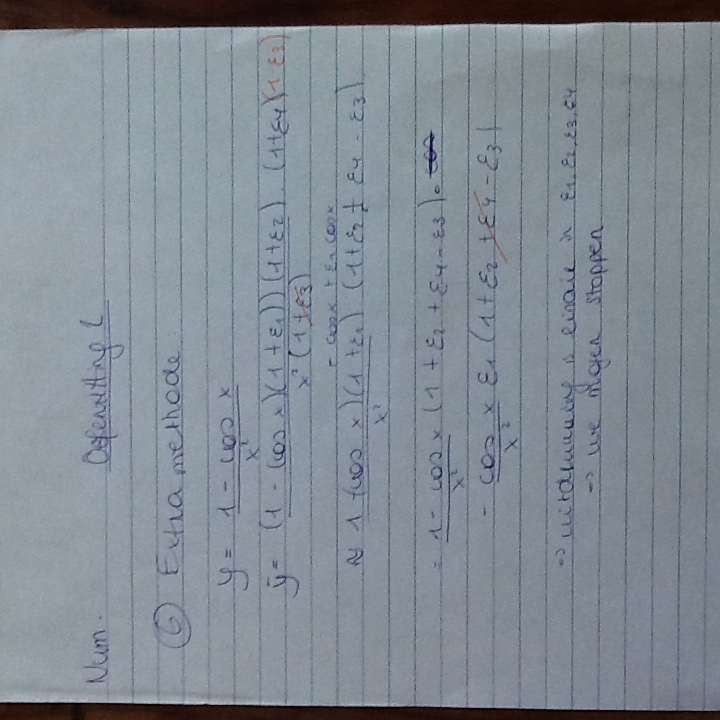 Num. Oefenzitting 1
6 Extra methode
y = 1 - cos x / x²
ȳ = (1 - (cos x)(1 + ε1))(1 + ε2) · (1+ε4)(1-ε3) / x² (1+ε3)
= cosx + ε1 cosx
≈ 1 - (cos x)(1 + ε1) / x² (1 + ε2 + ε4 - ε3)
= 1 - cos x / x² (1 + ε2 + ε4 - ε3)
- cos x / x² ε1 (1 + ε2 + ε4 - ε3)
→ uitdrukking is lineair in ε1, ε2, ε3, ε4
→ we mogen stoppen